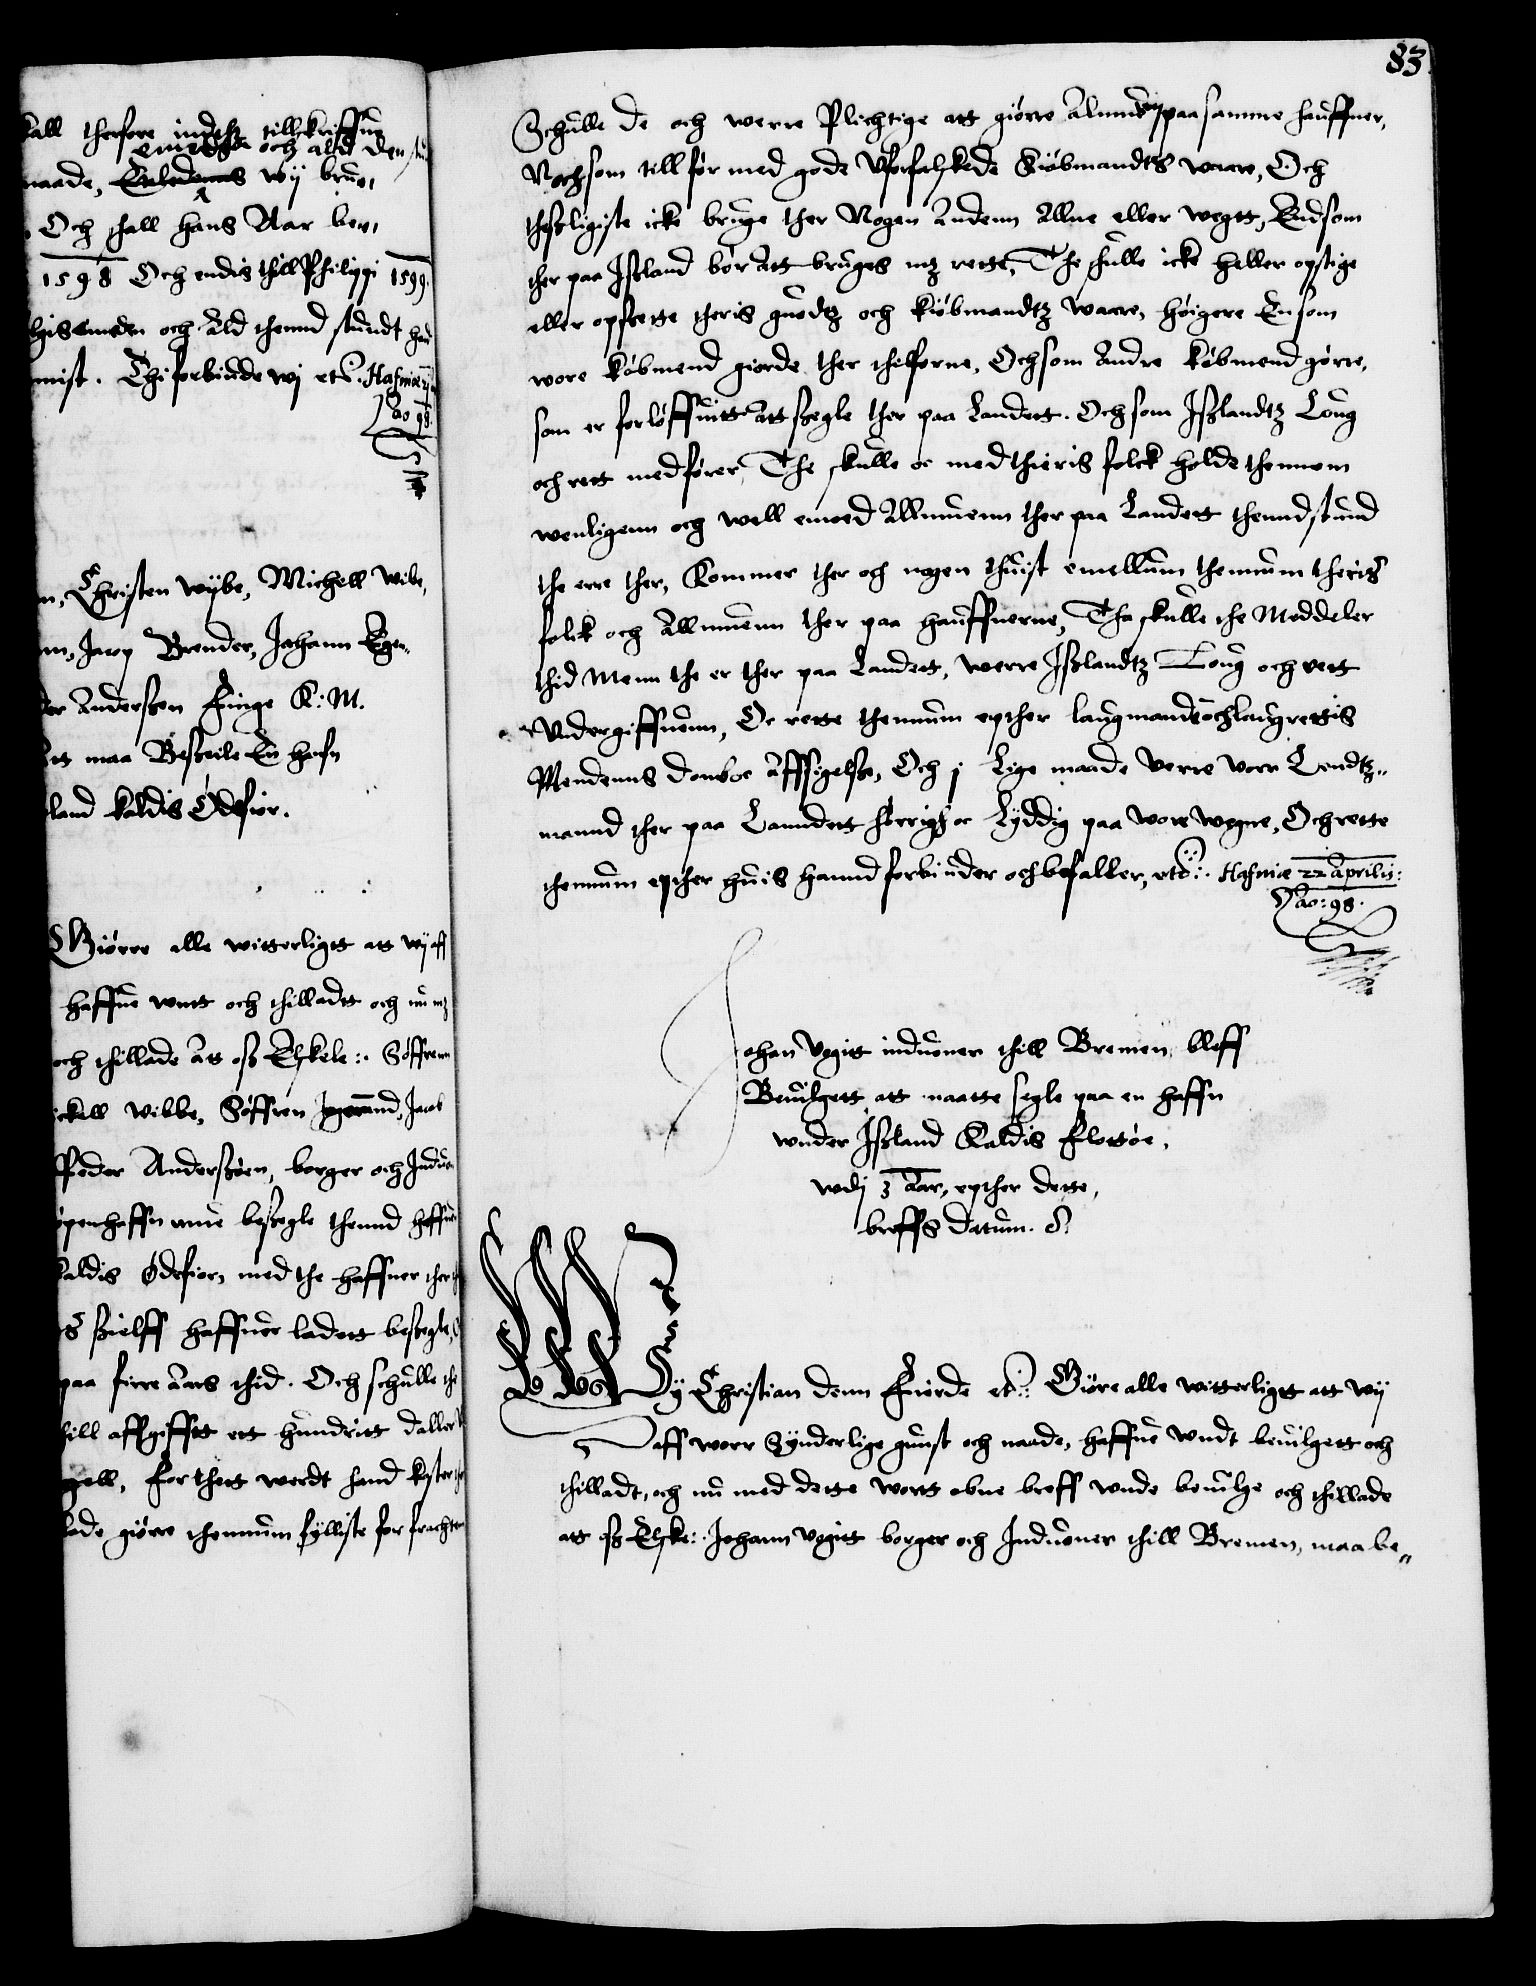 83.
kall therfore indthz tillskriffue
emeden och ald den stu
naade, wij brue,
Och skall hans Aar bere,
1598 Och endis thill Philippi 1599.
emeden och Ald thennd stundt hand
mist. Thi forbiude wj etc. Hafniæ
Ao 98.
n, Christen Wybe, Michell Wibe,
nn, Jacop Brender, Johann Egen
der Anderssen finge K: M.
at maa Besseile En hafn
land kaldis Ódefior.
Giörre alle witterligtt att wij aff
haffue wntt och thilladtt och nu mz
och thillade At oss Elskele:. Söffrenn
ickell Vibbe, Söffren Jegerand, Jacob
Peder Anderssøen, borger och Induo
öpenhaffn mue bessegle thennd haffuen
kaldis Ódefior, med the haffner ther
s sielff haffuer ladett bessegle,
paa firre Aars thid. Och schulle the
till affgifftt ett hundritt daller
gell, for thett werdt hand
lade giörre thennum fylliste for frachten
Schulle de och werre Plichtige att giörre Almuen paa samme hauffner,
Noch som till för med gode Vforfalskede Kiöbmandts waare, Och
thesligiste icke bruge ther Nogen Andenn Allne eller wegtt, End som
ther paa Issland bör Att bruges mz rette, The skulle icke heller opstige
eller opsette theris guodtz och kiöbmandtz waare, höigere En som
wore köbmend giorde ther thilforne, Och som Andre köbmend görre,
som er forlöffuitt Att seegle ther paa Landett. Och som Isslandtz Loug
och rett medförer, The skulle oc med thieris folck holde thennem
wenligenn och well emoed Allmuenn ther paa Landett thennd stund
the erre ther, Kommer ther och nogen thuist emellum thennum theris
folck och Allmuenn ther paa hauffnerne, Tha skulle the Meddeler
thid Menn the er ther paa Landett, werre Isslandtz Loug och rett
Vndergiffuenn, Oc rette thennum epther laugmandz och laugrettis
Mendenns domb oc Affsigelse, Och j Lige maade verre vorr Lendtz
mannd ther paa Lanndett hörrig oc Lyddig paa wore wegne, Och rette
thennum epther huis hannd forbiuder och befaller, etc:. Hafniæ 22 Aprilis:
Ao: 98.
Johan Vogitt induoner thill Bremen, bleff
Beuilgett att maatte segle paa en haffn
wnder Issland Kaldis Flottöe,
wdj 3 Aar, epther dette,
breffs datum.
Wij Christian denn Fierde etc:. Giöre alle witterligtt att wij
aff worr Synderlige gunst och naade, haffue wndt beuilgett och
thilladt, och nu med dette wortt obne breff wnde beuilge och thillade
att oss Elske:. Johann Vogitt borger och Induoner thill Bremen, maa be„